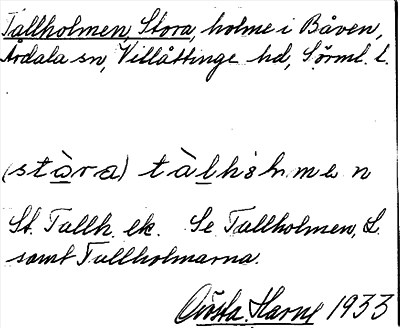 Tallholmen, Stora, holme i Båven,
Årdala sn, Villåttinge hd, Sörml. l.
(stàra) tàlhòlmen
St. Tallh. ek. Se Tallholmen, L.
samt Tallholmarna.
Gösta Harne 1933